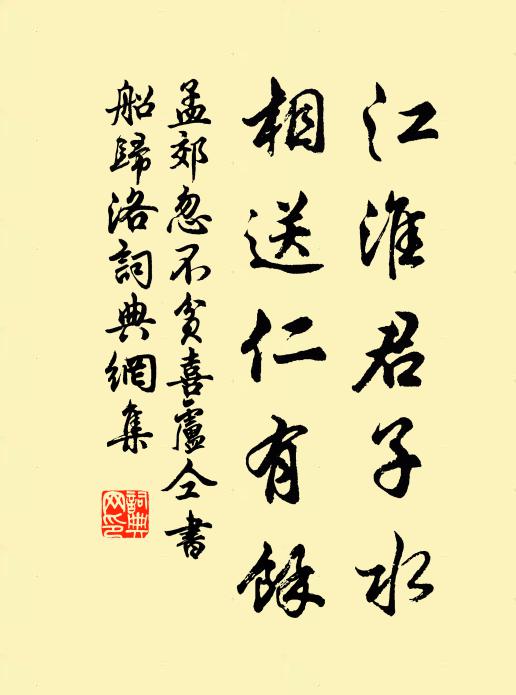 江淮君子水
相送仁有餘
孟郊忽不貧喜盧仝書
船歸洛詞典網集
詞典網印